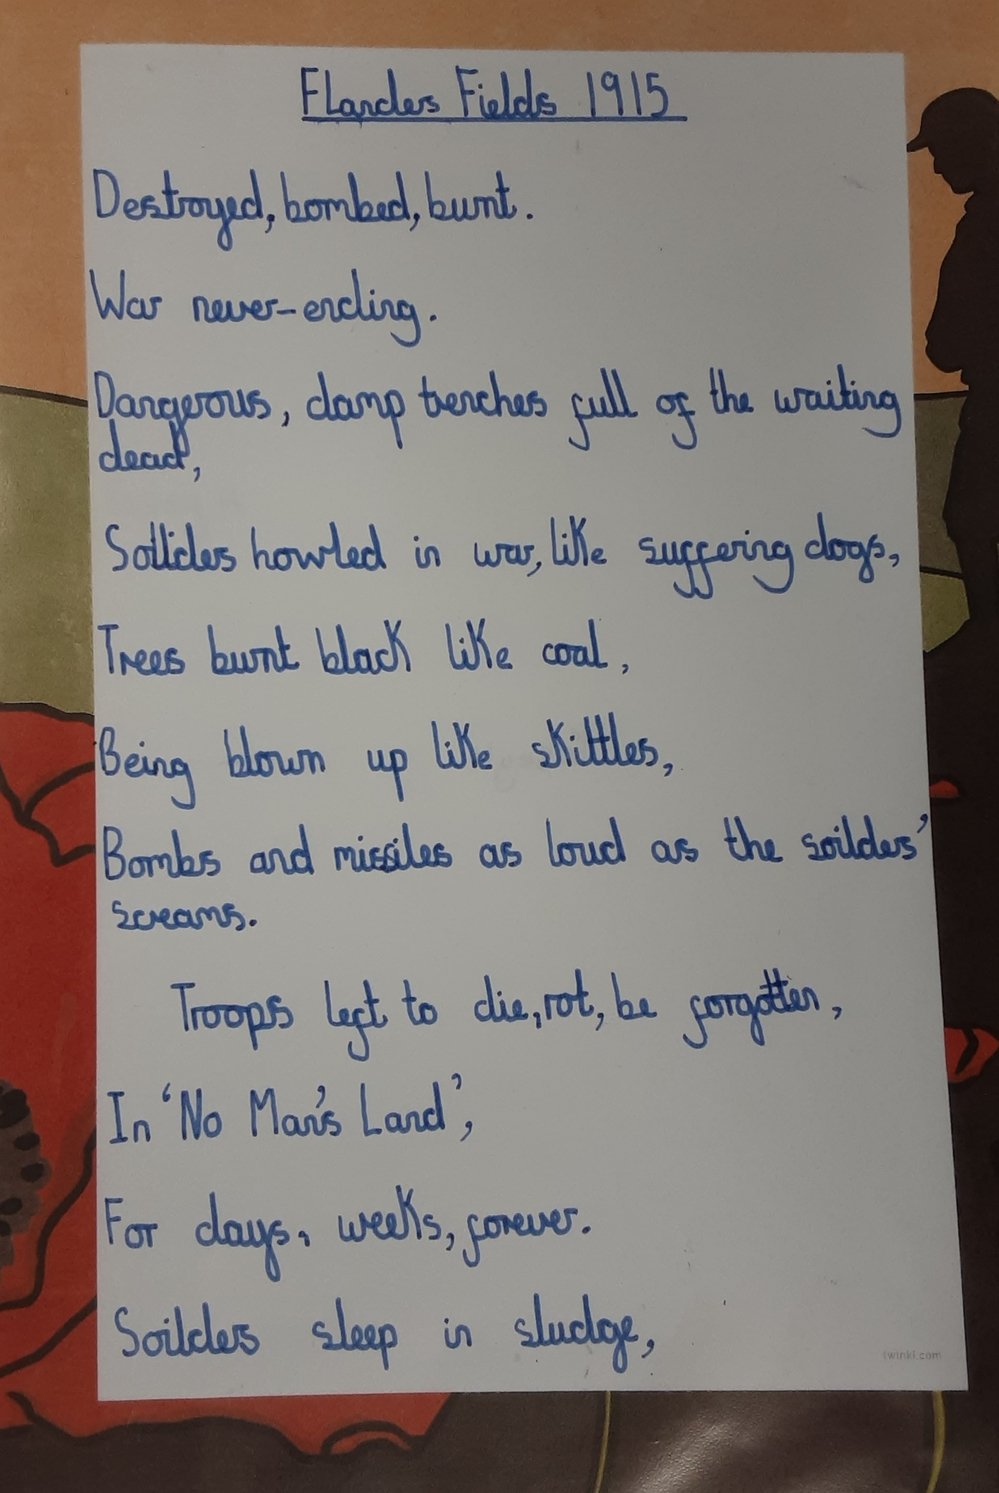 Flanders Fields 1915
Destroyed, bombed, burnt.
War never-ending.
Dangerous, damp trenches full of the waiting
dead,
Sollides howled in war, like suffering dogs,
Trees burnt black like coal,
Being blown up like skittles,
Bombs and missiles as loud as the soilders'
screams.
Troops left to die, rot, be forgotten,
In 'No Man's Land',
For days, weeks, forever.
Soilders sleep in sludge,
twinkl.com